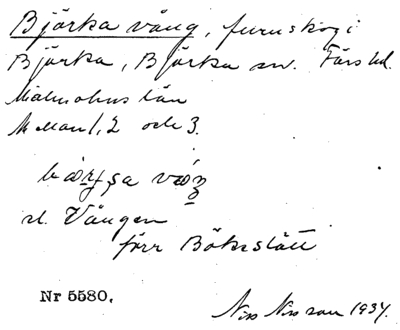 Björka vång, furuskog i
Björka, Björka sn. Färs hd.
Malmöhus län
Mellan 1, 2 och 3.
el. Vången
förr Bökeslätt
Nr 5580.
Nils Nilsson 1934.